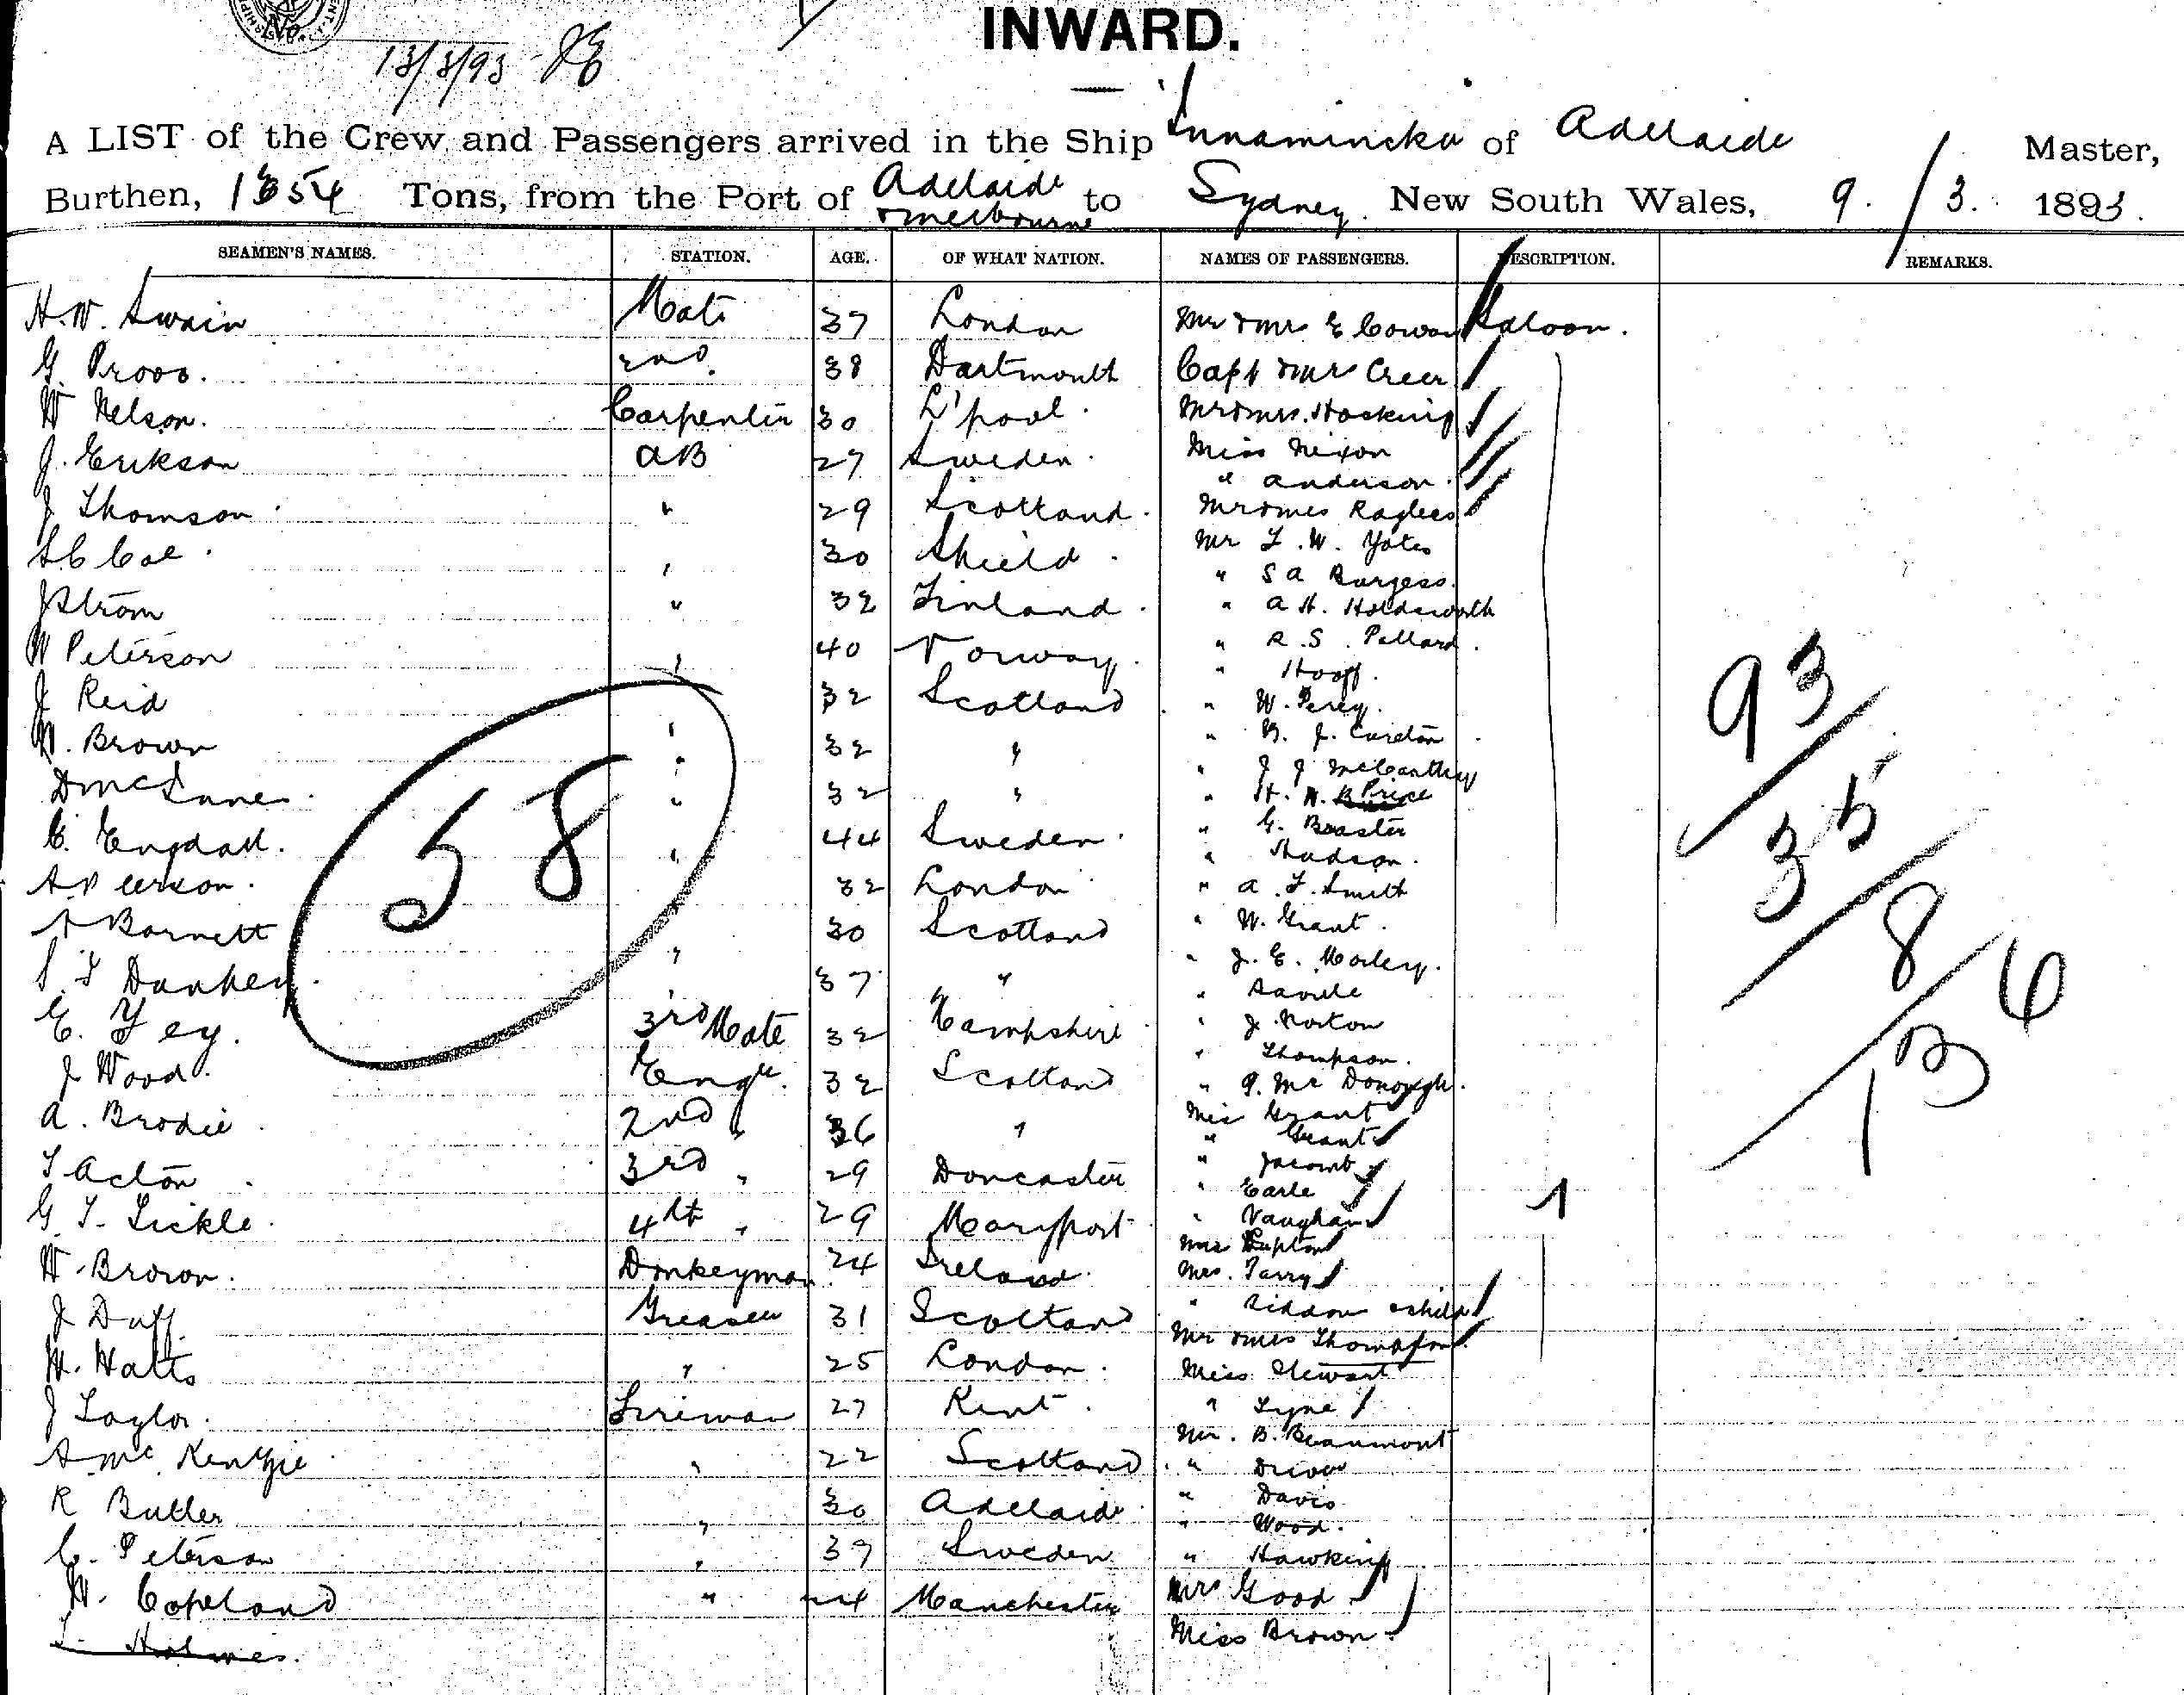 INWARD.
No.
13/3/93
A LIST of the Crew and Passengers arrived in the Ship Innamincka of Adelaide Master,
Burthen, Tons, from the Port of Adelaide & Melbourne to Sydney New South Wales, 9./3. 1893.
SEAMEN'S NAMES. STATION. AGE. OF WHAT NATION. NAMES OF PASSENGERS. DESCRIPTION. REMARKS.
H. W. Swain Mate 37 London Mr & Mrs E Cowan Saloon.
G. 2nd. 38 Dartmouth Capt & Mrs Creer
W Nelson. Carpenter 30 L'pool. Mr & Mrs. Hosking
J. Erikson AB 27 Sweden. Miss Nixon
" Anderson.
J Thomson " 29 Scotland. Mr & Mrs Ragless
30 Shield. Mr T. W. Yates
" S A Burgess.
J Strom " 32 Finland. " A H. Holdsworth
W Peterson " 40 Norway. " R. S. Pollard.
" Hooff.
J Reid " 32 Scotland " W. Percy.
W. Brown " 32 " " J. Cureton
" J J McCarthy
" 32 " " H. W. Price
C. Engdall. " 44 Sweden. " G. Boaster
" Hudson.
32 London " A. T. Smith
A Barnett " 30 Scotland " W. Grant.
" J. E. Morley.
S. T Dunken. " 37 " " Saville
E. Yey. 3rd Mate 32 Hampshire " J. Norton
" Thompson.
J Wood. Engr. 32 Scotland " P. Mc Donough.
A. Brodie 2nd " 36 " Mis Grant
" Grant
T Acton 3rd " 29 Doncaster " Jacomb
" Earle
G. T. Tickle. 4th " 29 Maryport " Vaughan
Mrs Lupton
W. Brown. Donkeyman 24 Ireland. Mrs. Tarry
J Duff. Greaser 31 Scotland " Siddon & child
Mr & Mrs Thompson.
H. Watts " 25 London. Miss Stewart
J Taylor. Fireman 27 Kent. " Lyne
Mr. B. Beaumont
A. Mc Kenzie " 22 Scotland " Driver
R Butler " 30 Adelaide " Davis
" Wood.
C. Peterson " 39 Sweden " Hawking
H. Copeland " 24 Manchester Mrs Good
T. Holmes. Miss Brown.
58
93
35
8
6
13
1